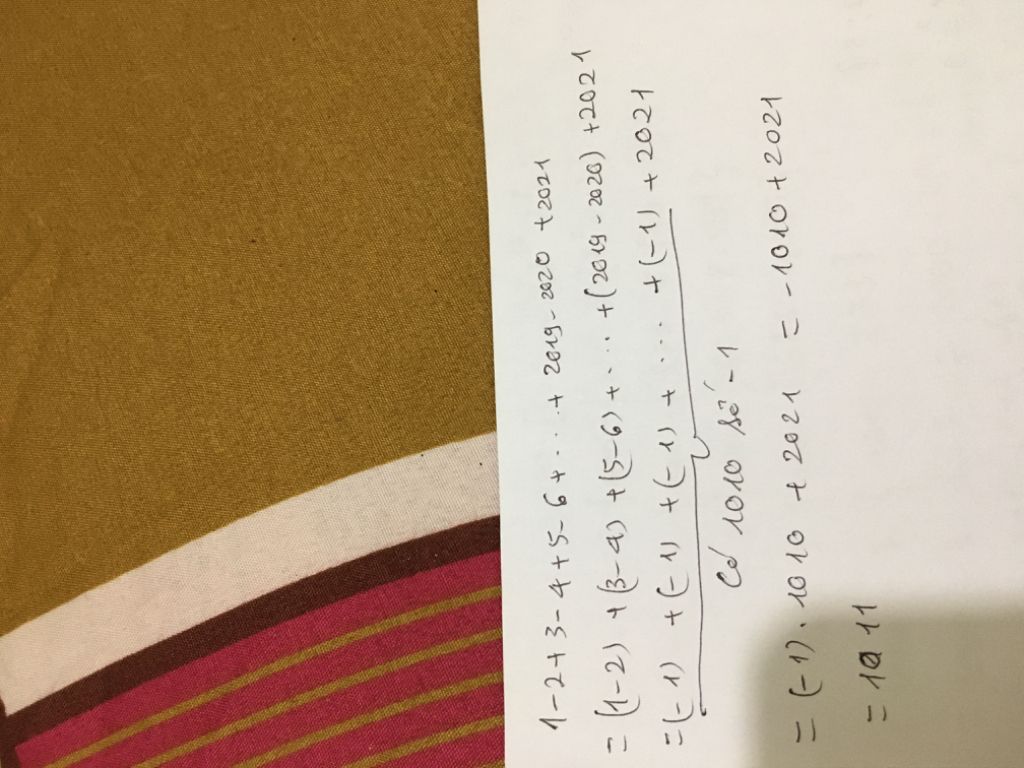 1-2+3-4+5-6+...+2019-2020+2021
=(1-2)+(3-4)+(5-6)+...+(2019-2020)+2021
=(-1)+(-1)+(-1)+...+(-1)+2021
Có 1010 số -1
=(-1).1010+2021=-1010+2021
=1011